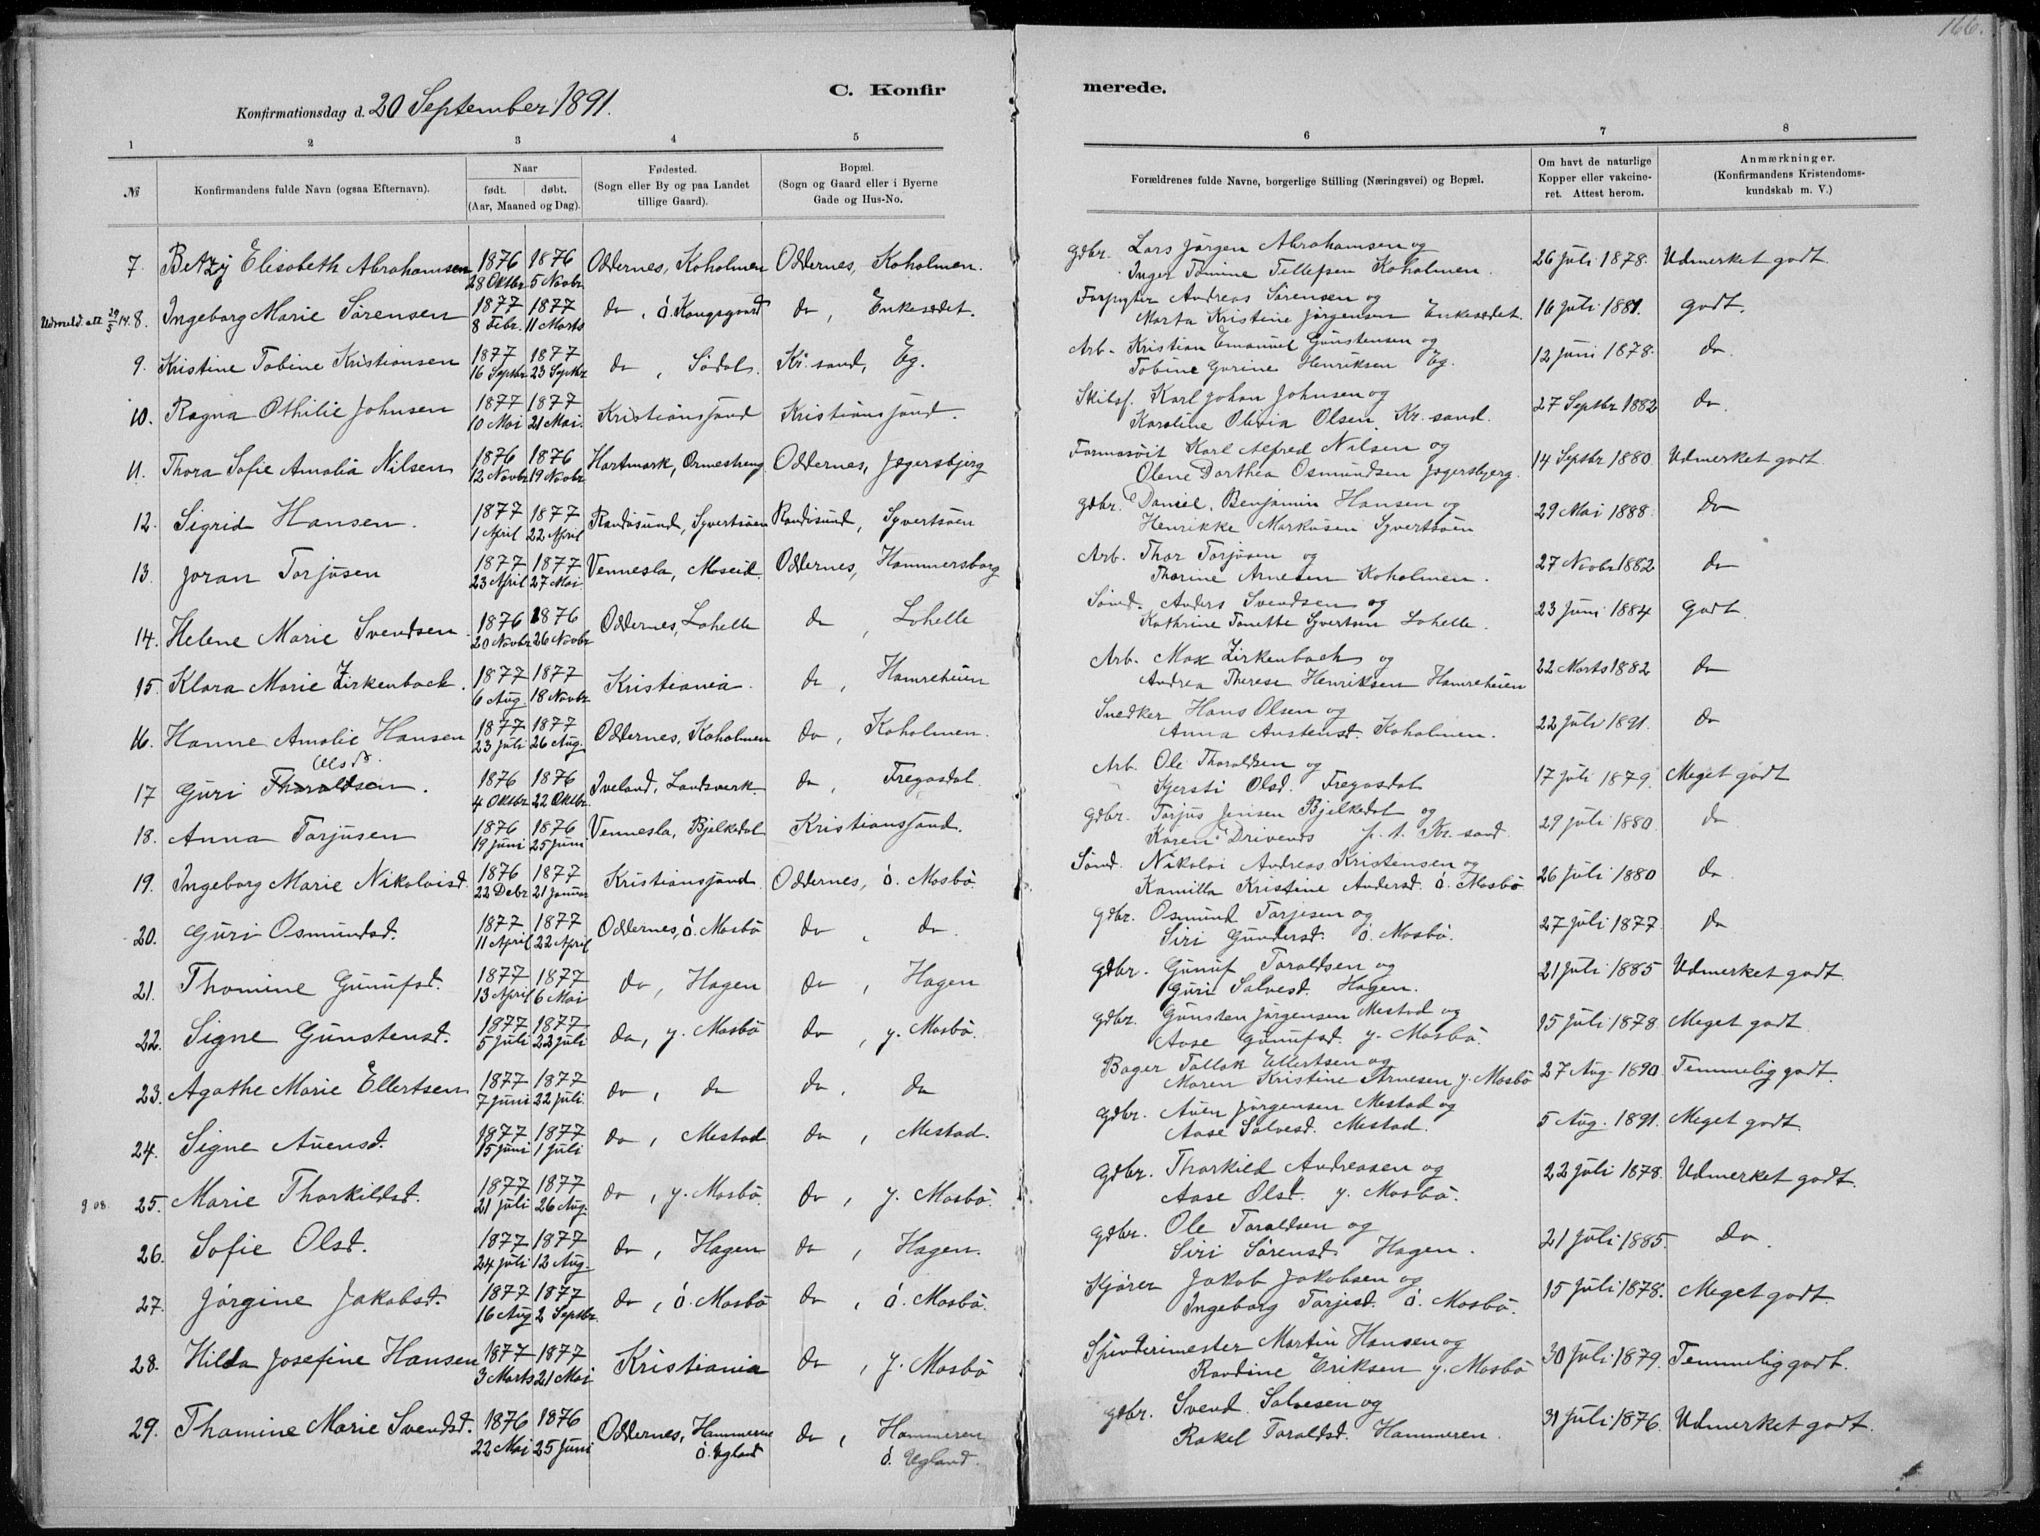 166.
C. Konfir merede.
Konfirmationsdag d. 20 September 1891.
1 2 3 4 5 6 7 8
№ Konfirmandens fulde Navn (ogsaa Efternavn). Naar født. døbt. (Aar, Maaned og Dag). Fødested. (Sogn eller By og paa Landet tillige Gaard). Bopæl. (Sogn og Gaard eller i Byerne Gade og Hus-No. Forældrenes fulde Navne, borgerlige Stilling (Næringsvei) og Bopæl. Om havt de naturlige Kopper eller vakcineret. Attest herom. Anmærkninger. (Konfirmandens Kristendomskundskab m. V.)
7. Betzy Elisabeth Abrahamsen 1876 28 Oktbr 1876 5 Novbr Oddernes, Koholmen Oddernes, Koholmen. Gdbr. Lars Jørgen Abrahamsen og Inger Tomine Tellefsen Koholmen. 26 Juli 1878. Udmerket godt.
Udmeld. att 29/5 14. 8. Ingeborg Marie Sørensen 1877 8 Febr. 1877 11 Marts do, ó. Kongsgaard do, Enkesædet. Forpagter Andreas Sørensen og Marta Kristine Jørgensen Enkesædet. 16 Juli 1881. Godt.
9. Kristine Tobine Kristiansen 1877 16 Septbr 1877 23 Septbr do, Sødal. Kr. sand, Eg. Arb. Kristian Emanuel Gunstensen og Tobine Gurine Henriksen Eg. 12 Juni 1878. do
10. Ragna Othilie Johnsen 1877 10 Mai 1877 21 Mai. Kristianssand Kristianssand. Skibsf. Karl Johan Johnsen og Karoline Olivia Olsen Kr. sand. 27 Septbr 1882 do.
11. Thora Sofie Amalia Nilsen 1876 12 Novbr 1876 19 Novbr Hartmark, Ormestreng Oddernes, Jegersbjerg Karl Alfred Nilsen og Olene Dorthea Osmundsen Jegersbjerg. 14 Septbr 1880. Udmerket godt.
12. Sigrid Hansen. 1877 1 April 1877 22 April Randøsund, Syvertsøen Randøsund, Syvertsøen Gdbr. Daniel Benjamin Hansen og Henrikke Markusen Syvertsøen 29 Mai 1888. do
13. Joran Torjusen 1877 23 April 1877 27 Mai Vennesla, Moseid. Oddernes, Hammersborg Arb. Thor Torjusen og Thorine Arnesen Koholmen. 27 Novbr 1882 do
14. Helene Marie Svendsen. 1876 20 Novbr 1876 26 Novbr Oddernes, Lohelle do, Lohelle Sømd. Anders Svendsen og Kathrine Tonette Syvertsen Lohelle. 23 Juni 1884 Godt.
15. Klara Marie Zirkenbach. 1877 6 Aug. 1877 18 Novbr Kristiania. do, Hamreheien Arb. Max Zirkenbach og Andrea Therese Henriksen Hamreheien 22 Marts 1882 do
16. Hanne Amalie Hansen 1877 23 Juli 1877 26 Aug. Oddernes, Koholmen do, Koholmen. Snedker Hans Olsen og Anna Austensd. Koholmen. 22 Juli 1891. do
17 Guri Thoraldsen. Olsd. 1876 4 Oktbr. 1876 22 Oktbr. Iveland, Landsverk. do, Fregasdal. Arb. Ole Thoraldsen og Kjersti Olsd. Fregasdal 17 Juli 1879. Meget godt
18. Anna Torjusen 1876 19 Juni 1876 25 Juni Vennesla, Bjelkedal Kristianssand. Gdbr. Torjus Jensen Bjelkedal og Karen Drivends p. t. Kr. sand. 29 Juli 1880. do
19. Ingeborg Marie Nikolaisd. 1876 22 Debr 1877 21 Januar Kristianssand. Oddernes, ó. Mosbø. Sømd. Nikolai Andreas Kristensen og Kamilla Kristine Andersd. ó. Mosbø. 26 Juli 1880 do.
20. Guri Osmundsd. 1877 11 April 1877 22 April Oddernes, ó. Mosbø do, do. Gdbr. Osmund Torjesen og Siri Gundersd. ó. Mosbø. 27 Juli 1877 do
21. Thomine Gunufsd. 1877 13 April 1877 6 Mai do, Hagen do, Hagen Gdbr. Gunuf Toraldsen og Guri Salvesd. Hagen. 21 Juli 1885 Udmerket godt.
22. Signe Gunstensd. 1877 5 Juli 1877 22 Juli do, y. Mosbø do, y. Mosbø. Gdbr. Gunsten Jørgensen Mestad og Aase Gunufsd. y. Mosbø. 15 Juli 1878 Meget godt
23. Agathe Marie Ellertsen 1877 7 Juni 1877 22 Juli. do, do do, do Bager Tallak Ellertsen og Maren Kristine Arnesen y. Mosbø 27 Aug. 1890. Temmelig godt.
24. Signe Auensd. 1877 15 Juni 1877 1 Juli do, Mestad. do, Mestad. Gdbr. Auen Jørgensen Mestad og Aase Salvesd. Mestad. 5 Aug. 1891. Meget godt.
9 08. 25. Marie Thorkildsd. 1877 21 Juli 1877 26 Aug. do, y. Mosbø. do, y. Mosbø. Gdbr. Thorkild Andreasen og Aase Olsd. y. Mosbø. 22 Juli 1878. Udmerket godt.
26. Sofie Olsd. 1877 24 Juli 1877 12 Aug. do, Hagen do, Hagen. Gdbr. Ole Toraldsen og Siri Sørensd. Hagen. 21 Juli 1885. Do.
27. Jørgine Jakobsd. 1877 16 Aug 1877 2 Septbr. do, ó. Mosbø do, ó. Mosbø. Kjører Jakob Jakobsen og Ingeborg Torjesd. ó. Mosbø. 15 Juli 1878. Meget godt.
28. Hilda Josefine Hansen 1877 3 Marts 1877 21 Mai Kristiania do, y. Mosbø Spinderimester Martin Hansen og Randine Eriksen y. Mosbø 30 Juli 1879. Temmelig godt.
29. Thomine Marie Svendsd. 1876 22 Mai 1876 25 Juni Oddernes, Hammeren ó. Ugland do, Hammeren ó. Ugland. Gdbr. Svend Salvesen og Rakel Toraldsd. Hammeren. 31 Juli 1876. Udmerket godt.